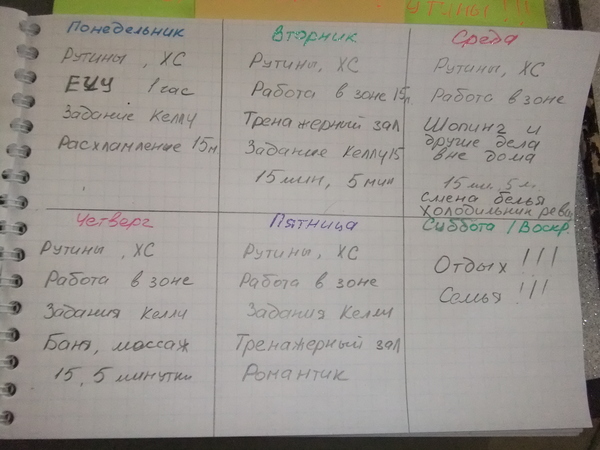 УТИНЫ!!!
Понедельник
Рутины, ХС
ЕЦУ 1 час
Задание Келли
Расхламление 15м.
Вторник
Рутины, ХС
Работа в зоне 15м.
Тренажерный зал
Задание Келли 15
15 мин, 5 мин
Среда
Рутины, ХС
Работа в зоне
Шопинг и
другие дела
вне дома
15 ми. 5 м.
смена белья
холодильник
Четверг
Рутины, ХС
Работа в зоне
Задания Келли
Баня, массаж
15, 5 минутки
Пятница
Рутины, ХС
Работа в зоне
Задания Келли
Тренажерный зал
Романтик
Суббота / Воскр.
Отдых!!!
Семья!!!